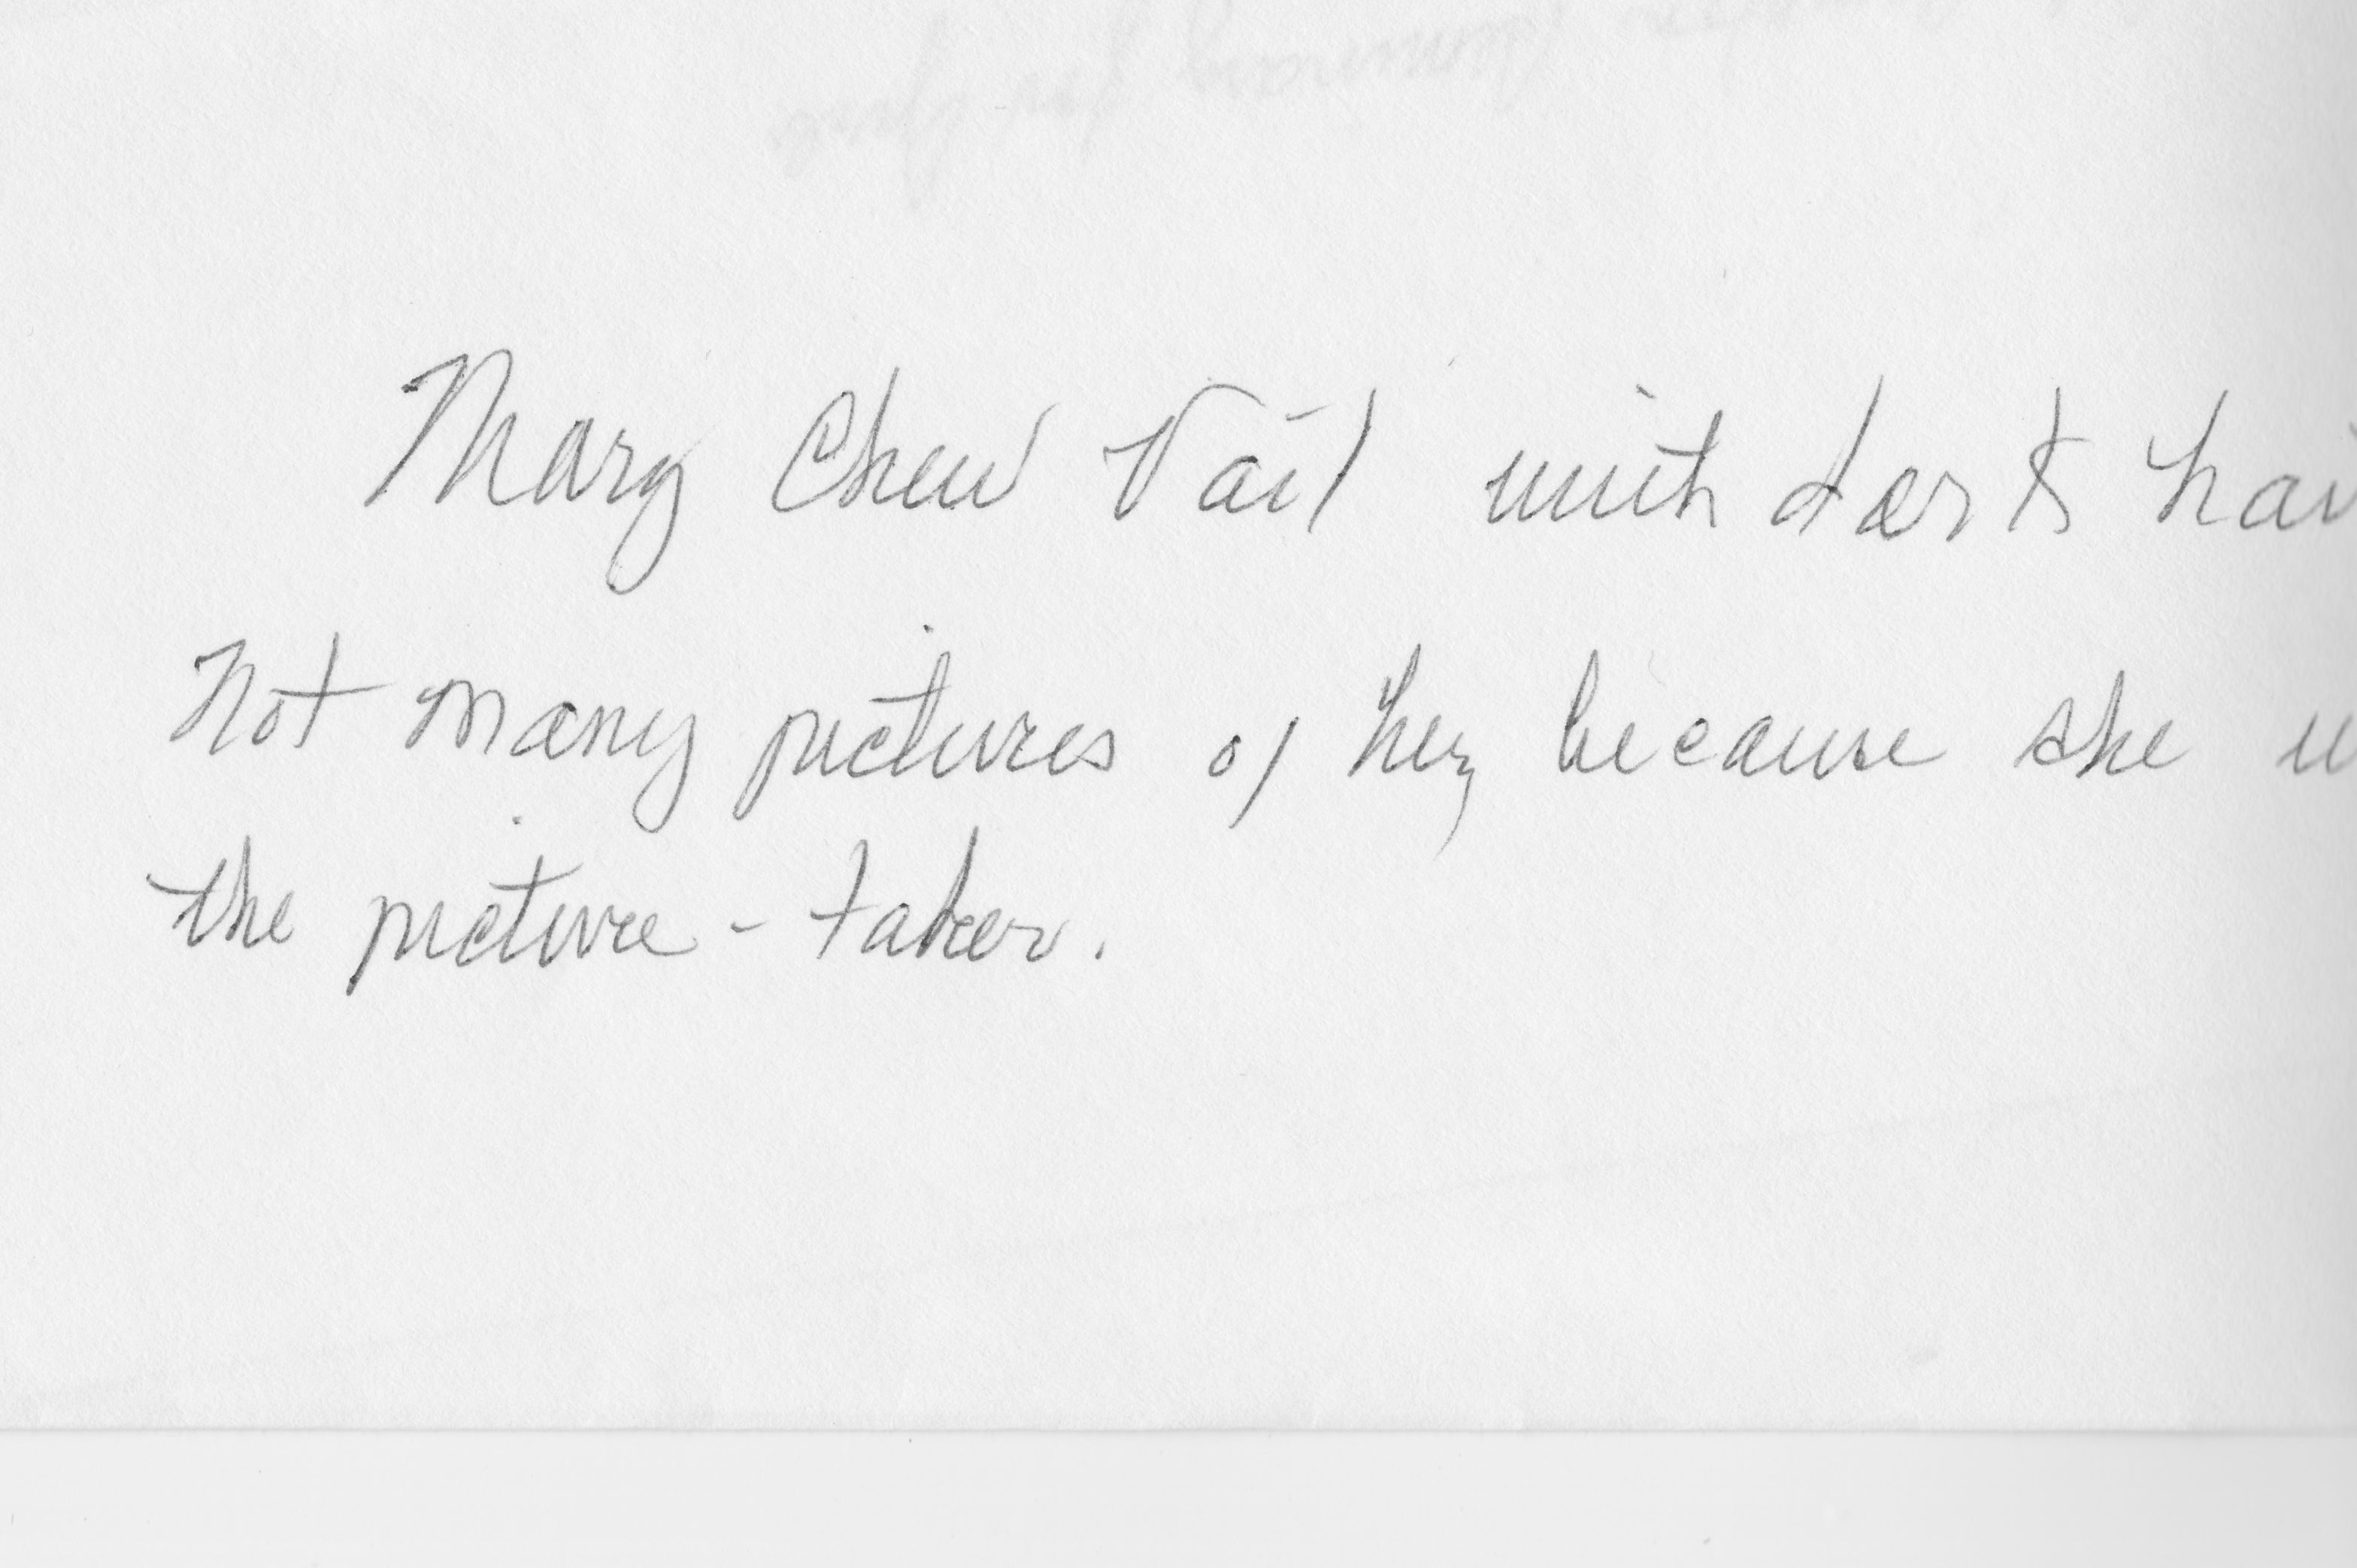 Mary Chew Vail with dark hai
Not many pictures of her because she w
the picture-taker.